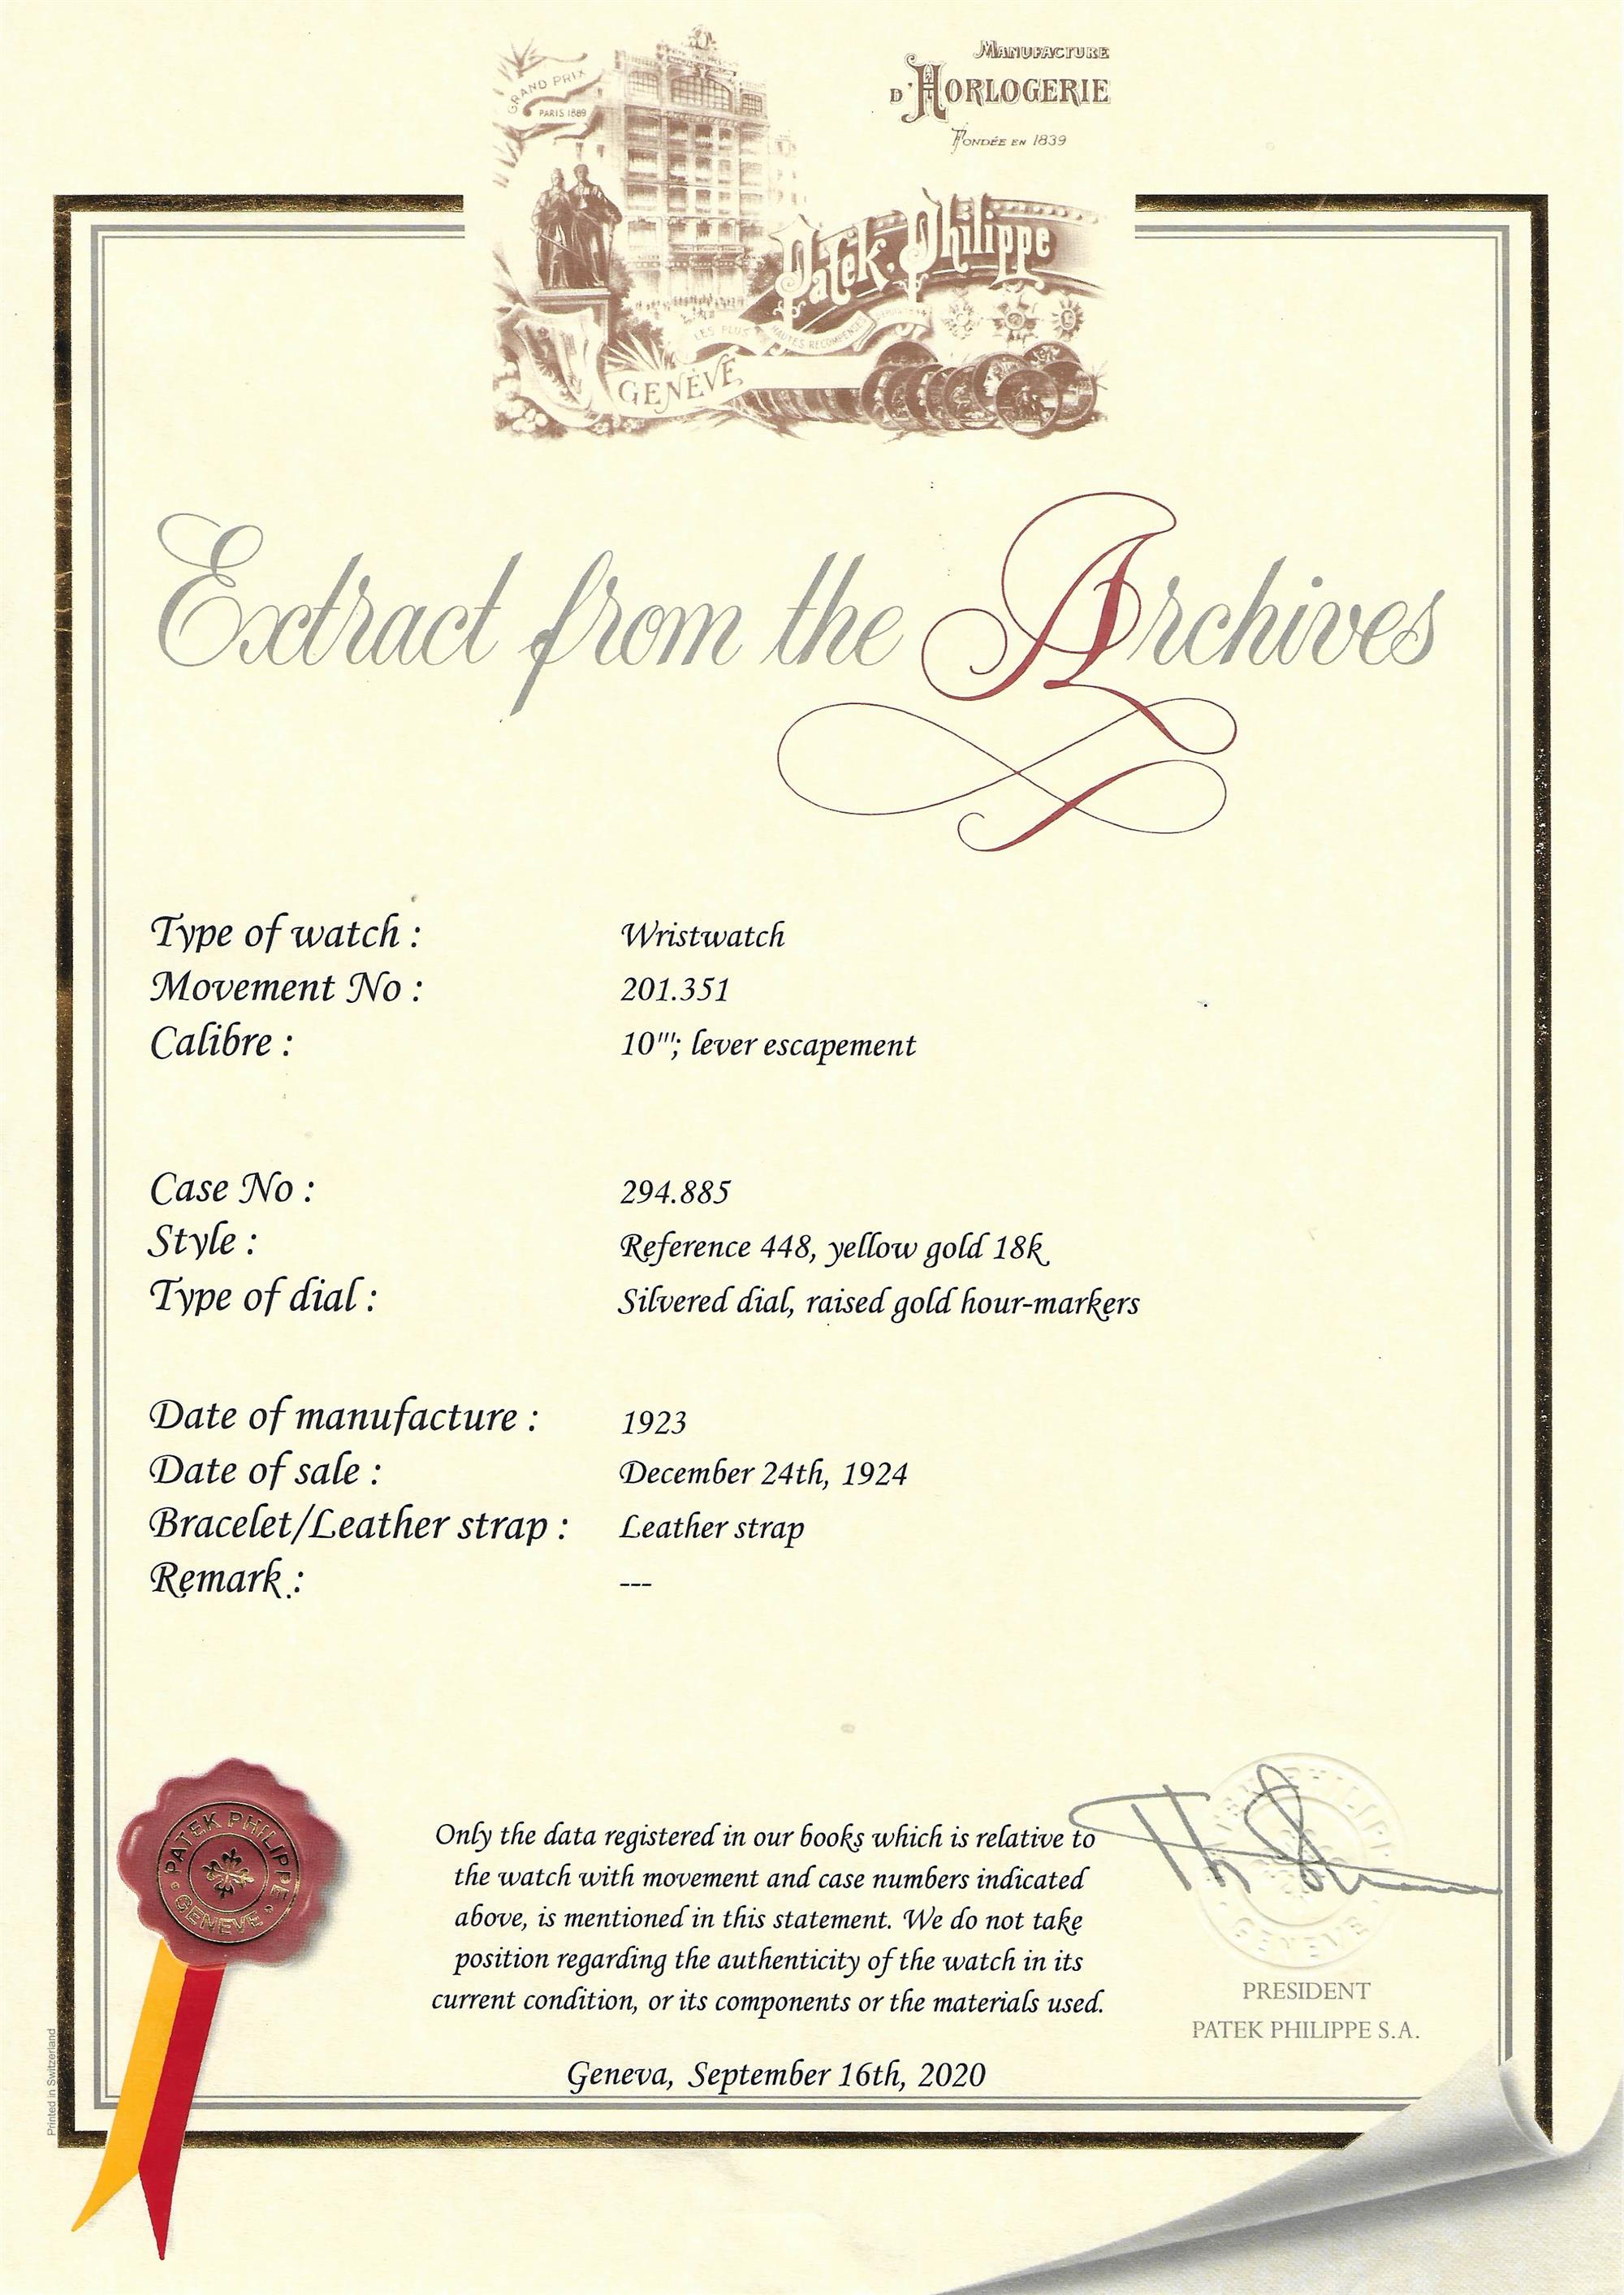 MANUFACTURE
D'HORLOGERIE
FONDÉE EN 1839
GRAND PRIX
PARIS 1889
Patek. Philippe
LES PLUS HAUTES RECOMPENSES
GENÈVE
Extract from the Archives
Type of watch : Wristwatch
Movement No : 201.351
Calibre : 10'''; lever escapement
Case No : 294.885
Style : Reference 448, yellow gold 18k
Type of dial : Silvered dial, raised gold hour-markers
Date of manufacture : 1923
Date of sale : December 24th, 1924
Bracelet/Leather strap : Leather strap
Remark : ---
PATEK PHILIPPE
GENEVE
Only the data registered in our books which is relative to
the watch with movement and case numbers indicated
above, is mentioned in this statement. We do not take
position regarding the authenticity of the watch in its
current condition, or its components or the materials used.
Geneva, September 16th, 2020
PATEK PHILIPPE
GENEVE
PRESIDENT
PATEK PHILIPPE S.A.
Printed in Switzerland